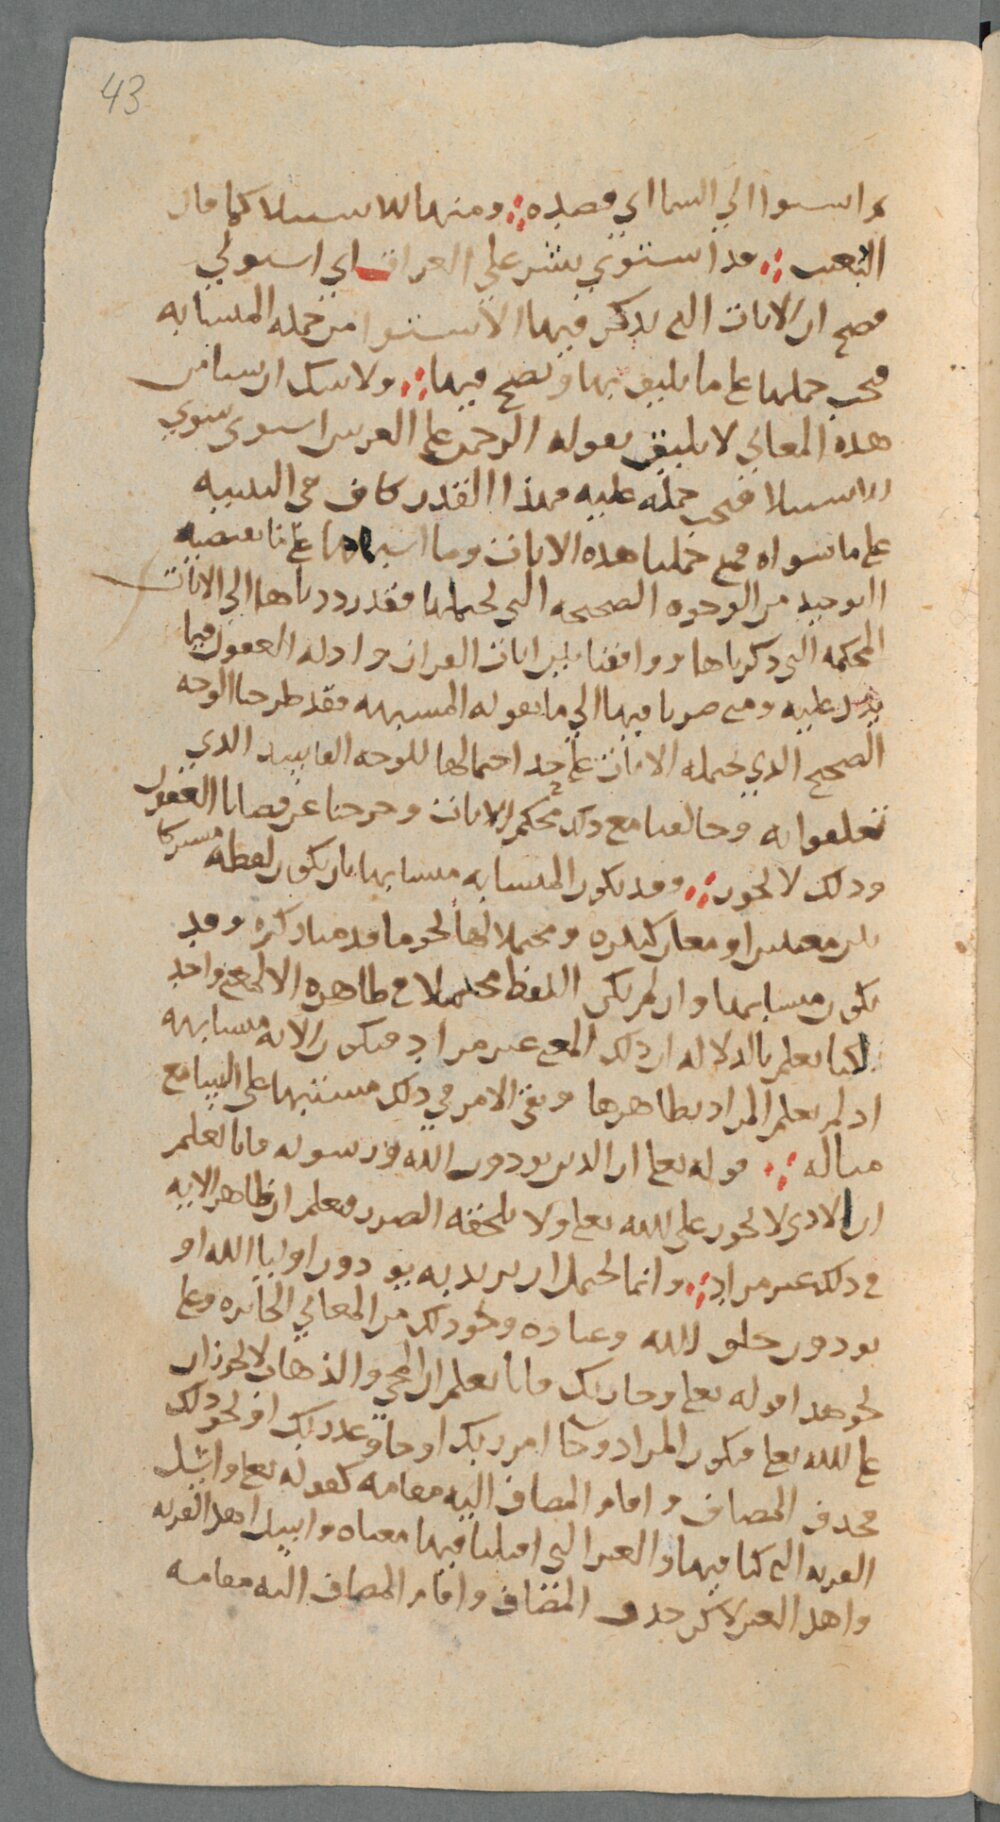 43
ثم استوا الي السما اي قصده ومنها الاستيلا كما قال
البعيث قد استوي بشر علي العراق اي استولي
فصح ان الايات التي يذكر فيها الاستوا من جمله المتشابه
فيجب حملها على ما يليق بها ويصح فيها ولا شك ان شيا من
هذه المعاني لا يليق بقوله الرحمن على العرش استوى سوي
الاستيلا فيجب حمله عليه فهذا القدر كاف في التنبيه
على ما سواه فمتى حملنا هذه الايات وما اشبهها على ما يقتضيه
التوحيد من الوجوه الصحيحه التي تحتملها فقد رددناها الي الايات
المحكمه التي ذكرناها ووافقنا بين ايات القران وادله العقول فيما
يدل عليه ومتى صرنا فيها الي ما يقوله المشبهه فقد طرحنا الوجه
الصحيح الذي تحتمله الايات على حد احتمالها للوجه الفاسد الذي
تعلقوا به وخالفنا مع ذلك محكم الايات وخرجنا عن قضايا العقول
وذلك لا يجوز وقد يكون المتشابه متشابها بان يكون لفظه مشتركا
بين معنيين او معان كثيره ومحتملا لها نحو ما قدمنا ذكره وقد
يكون متشابها وان لم يكن اللفظ محتملا في ظاهره الا لمعنى واحد
لكنا نعلم بالدلاله ان ذلك المعنى غير مراد فتكون الايه متشابهه
اذ لم نعلم المراد بظاهرها وبقى الامر في ذلك مشتبها على السامع
مثاله قوله تعالى ان الذين يوذون الله ورسوله فانا نعلم
ان الاذى لا يجوز على الله تعالى ولا يلحقه الضرر فنعلم ان ظاهر الايه
في ذلك غير مراد وانما يحتمل ان يريد به يوذون اوليا الله او
يوذون خلق الله وعباده ونحو ذلك من المعاني الجايزه وعلى
نحو هذا قوله تعالى وجا ربك فانا نعلم ان المجي والذهاب لا يجوزان
على الله تعالى فيكون المراد وجا امر ربك او جا وعد ربك او نحو ذلك
فحذف المضاف واقام المضاف اليه مقامه كقوله تعالى واسئل
القريه التي كنا فيها والعير التي اقبلنا فيها معناه واسئل اهل القريه
واهل العير لاكن حذف المضاف واقام المضاف اليه مقامه